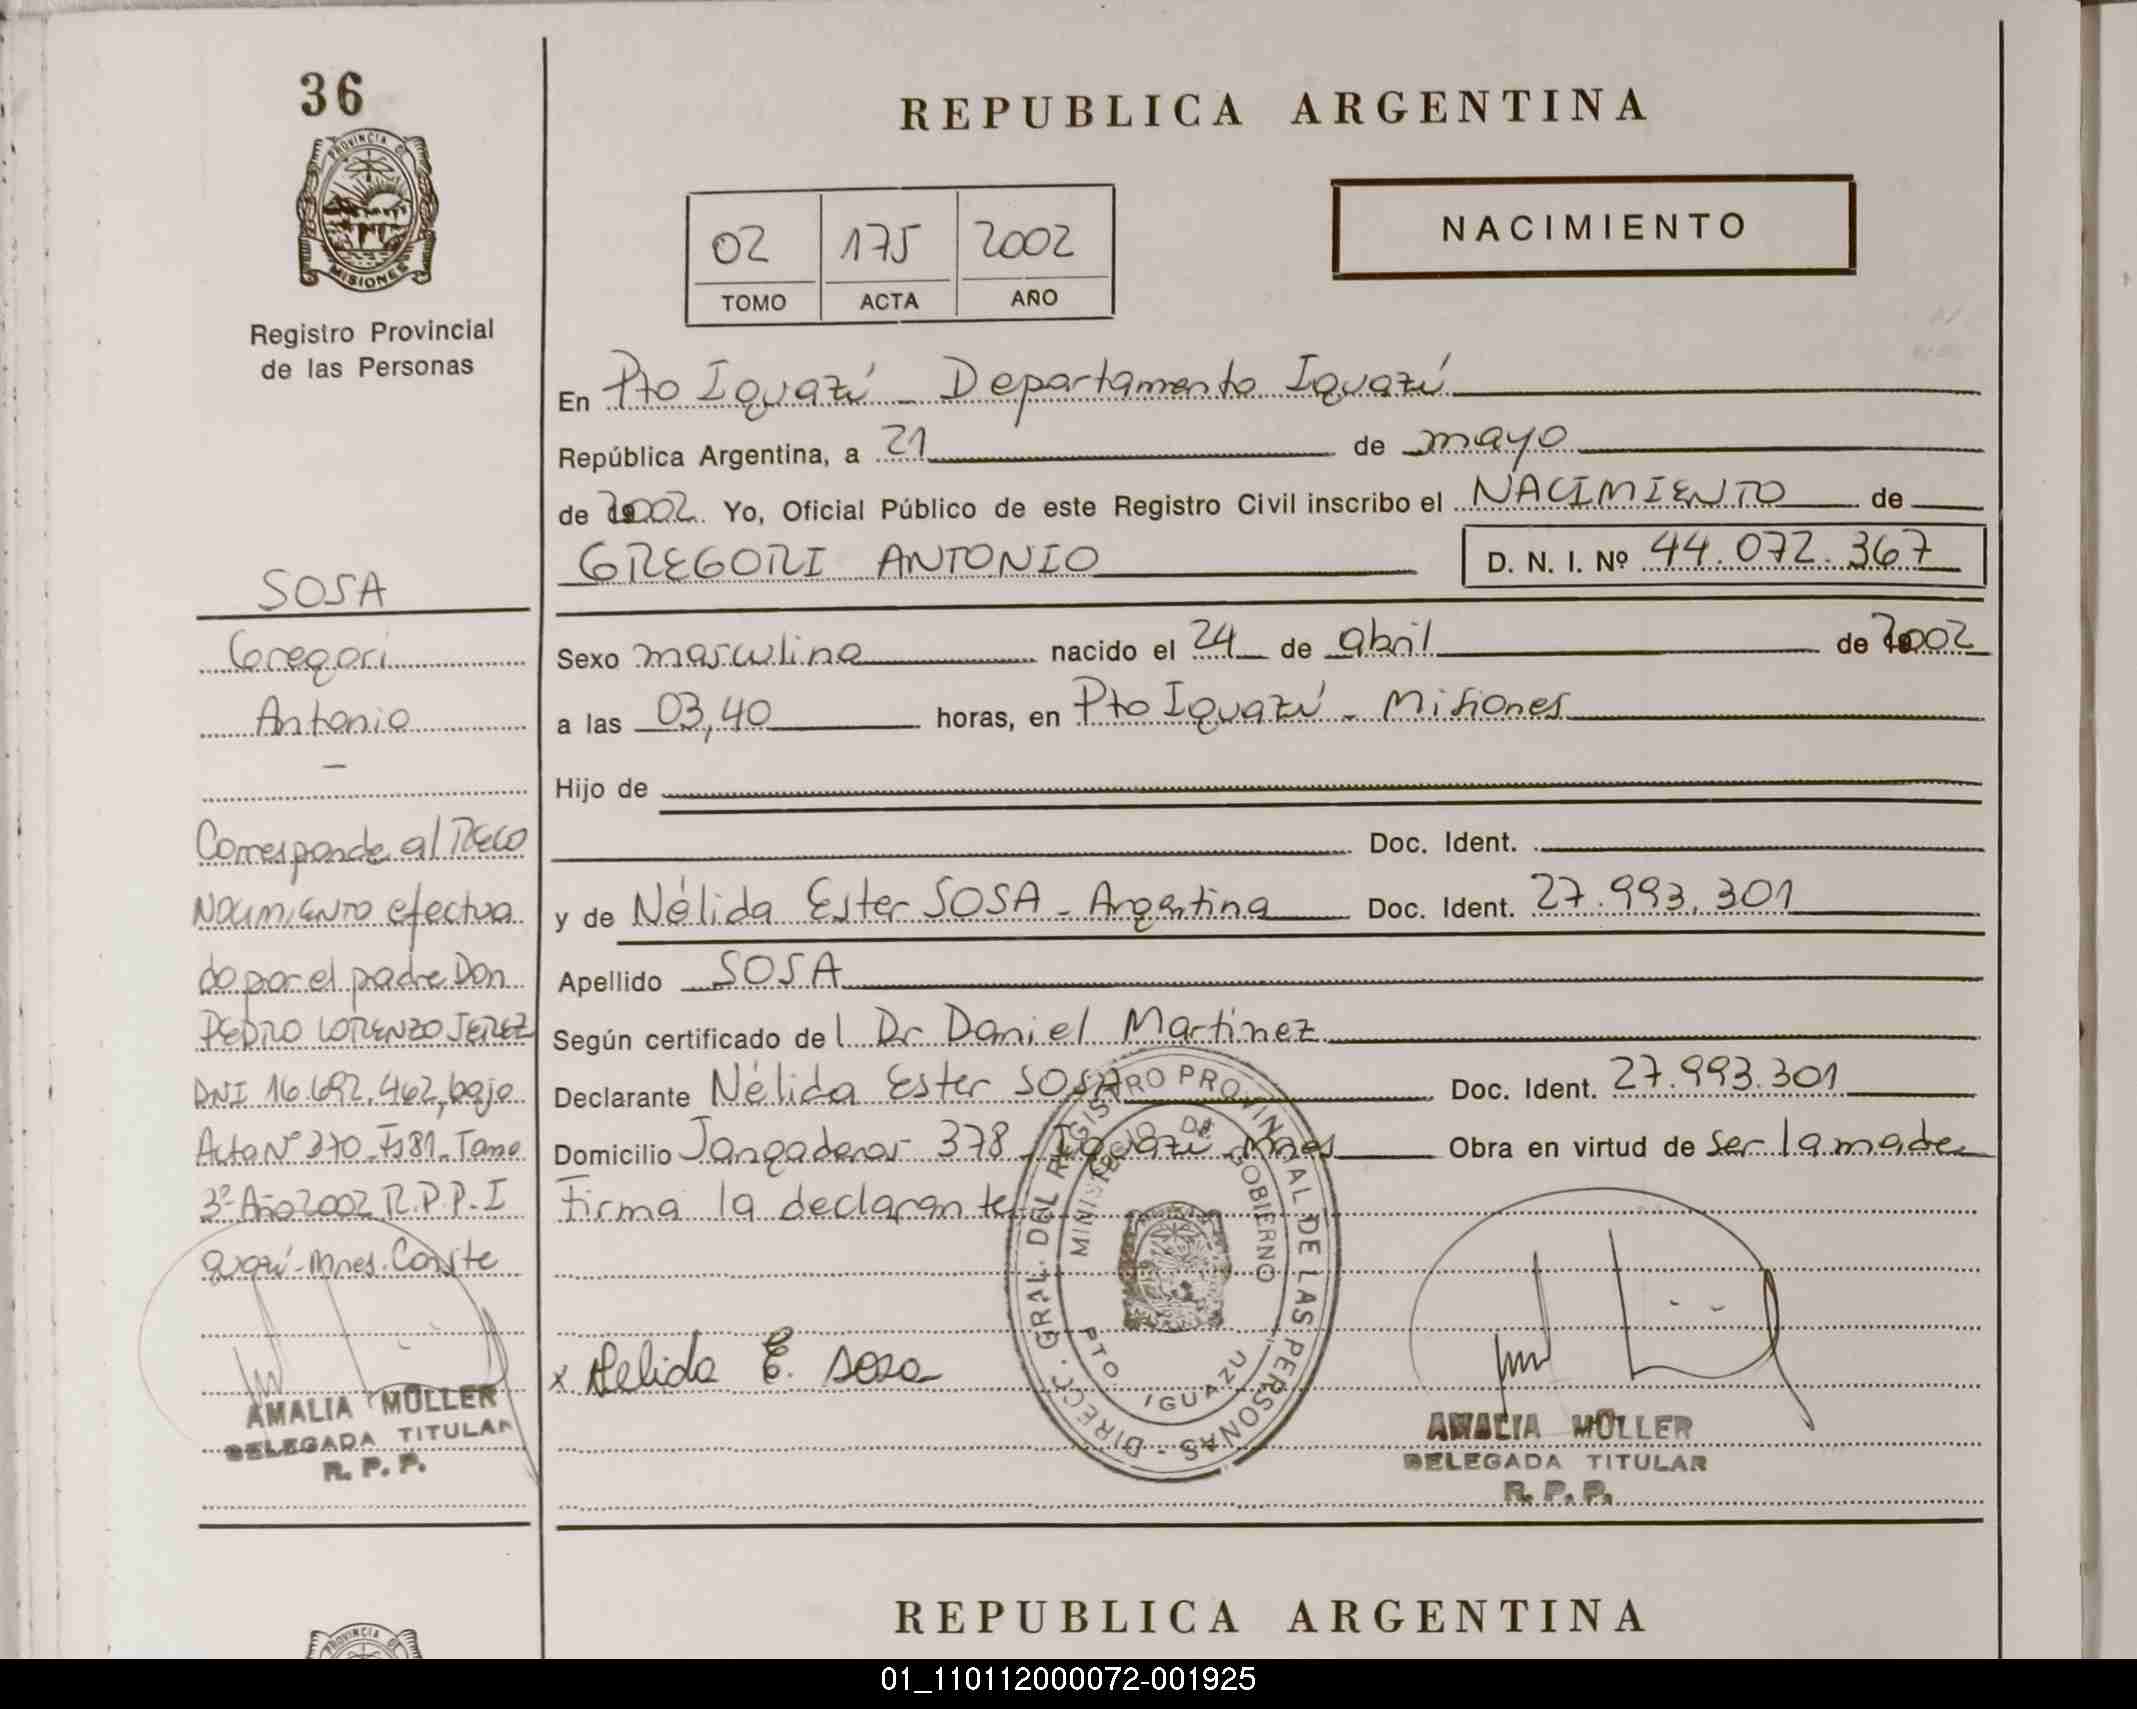 36
PROVINCIA DE
MISIONES
Registro Provincial
de las Personas
SOSA
Gregori
Antonio
—
Corresponde al Reco
nocimiento efectua
do por el padre Don
PEDRO LORENZO JEREZ
DNI 16.692.462, bajo
Acta Nº 370 - Fs 81 - Tomo
3º Año 2002 R.P.P. I
guazú - Mnes. Conste
AMALIA MÜLLER
DELEGADA TITULAR
R. P. P.
REPUBLICA ARGENTINA
NACIMIENTO
02 175 2002
TOMO ACTA AÑO
En Pto Iguazú - Departamento Iguazú
República Argentina, a 21 de mayo
de 2002. Yo, Oficial Público de este Registro Civil inscribo el NACIMIENTO de
GREGORI ANTONIO D. N. I. Nº 44.072.367
Sexo masculino nacido el 24 de abril de 2002
a las 03,40 horas, en Pto Iguazú - Misiones
Hijo de
Doc. Ident.
y de Nélida Ester SOSA - Argentina Doc. Ident. 27.993.301
Apellido SOSA
Según certificado del Dr Daniel Martinez
Declarante Nélida Ester SOSA Doc. Ident. 27.993.301
Domicilio Jangaderos 378 - Iguazú - Mnes Obra en virtud de ser la madre
Firma la declarante
DIRECC. GRAL. DEL REGISTRO PROVINCIAL DE LAS PERSONAS -
MINISTERIO DE GOBIERNO
PTO. IGUAZU
x Nelida E. Sosa
AMALIA MÜLLER
DELEGADA TITULAR
R. P. P.
PROVINCIA DE
REPUBLICA ARGENTINA
01_110112000072-001925